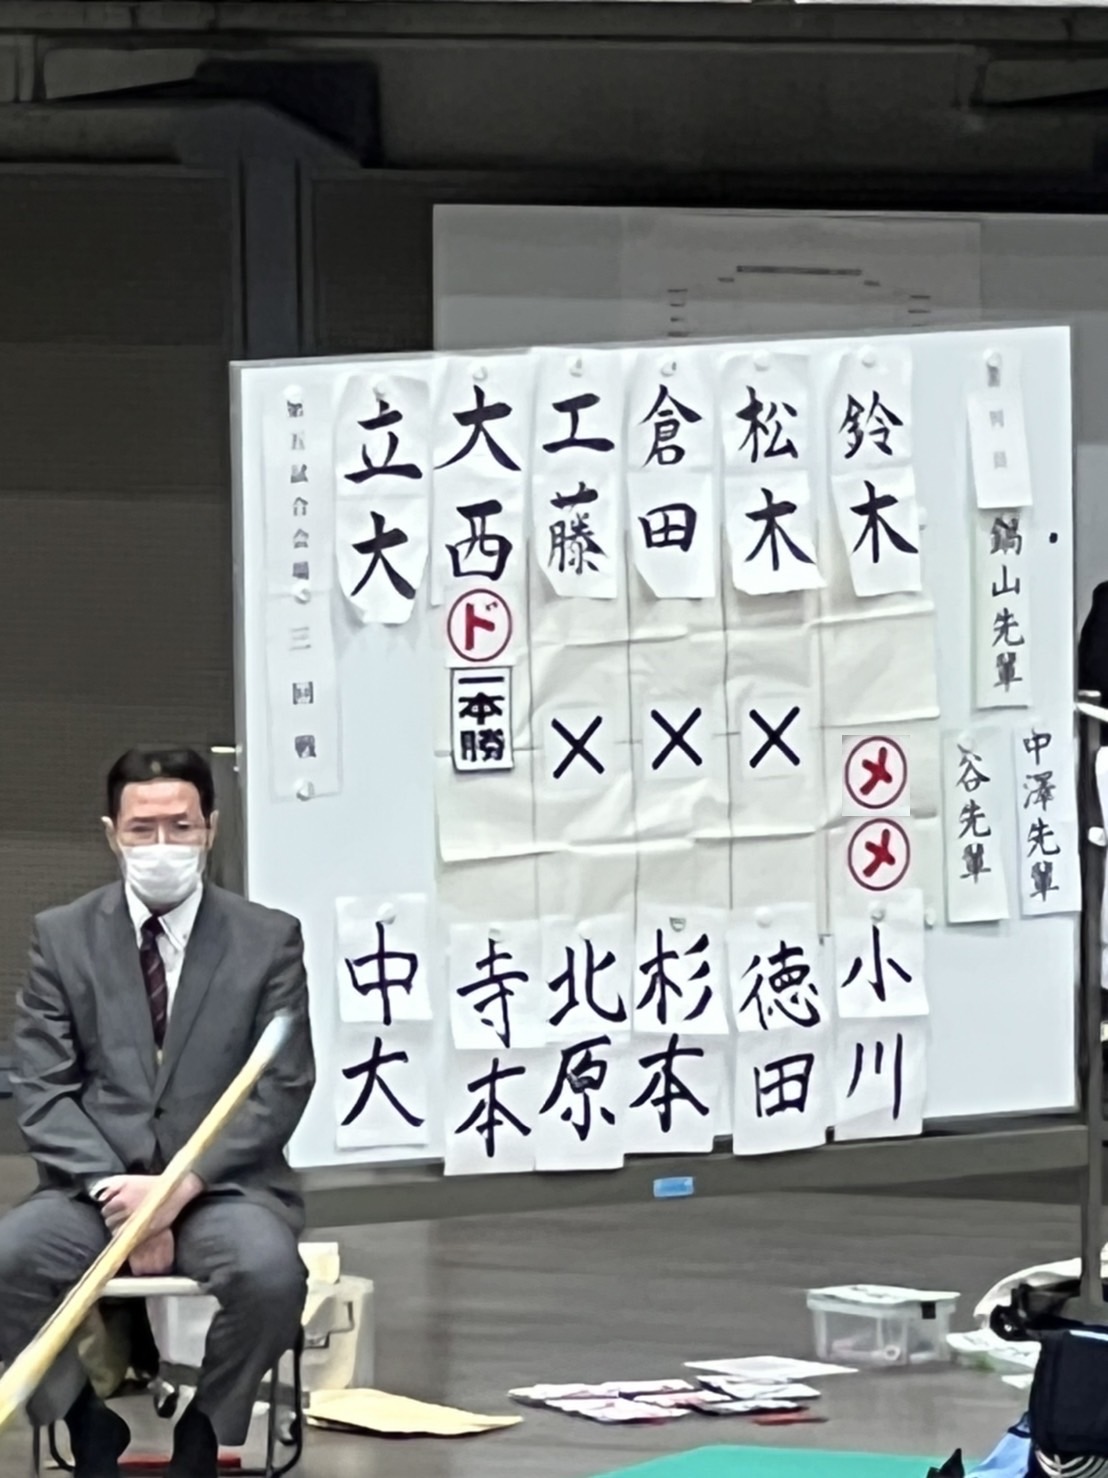 審判員
鍋山先輩
中澤先輩
谷先輩
鈴木
メ
メ
小川
松木
×
徳田
倉田
×
杉本
工藤
×
北原
大西
ド
一本勝
寺本
立大
中大
第五試合会場 三回戦